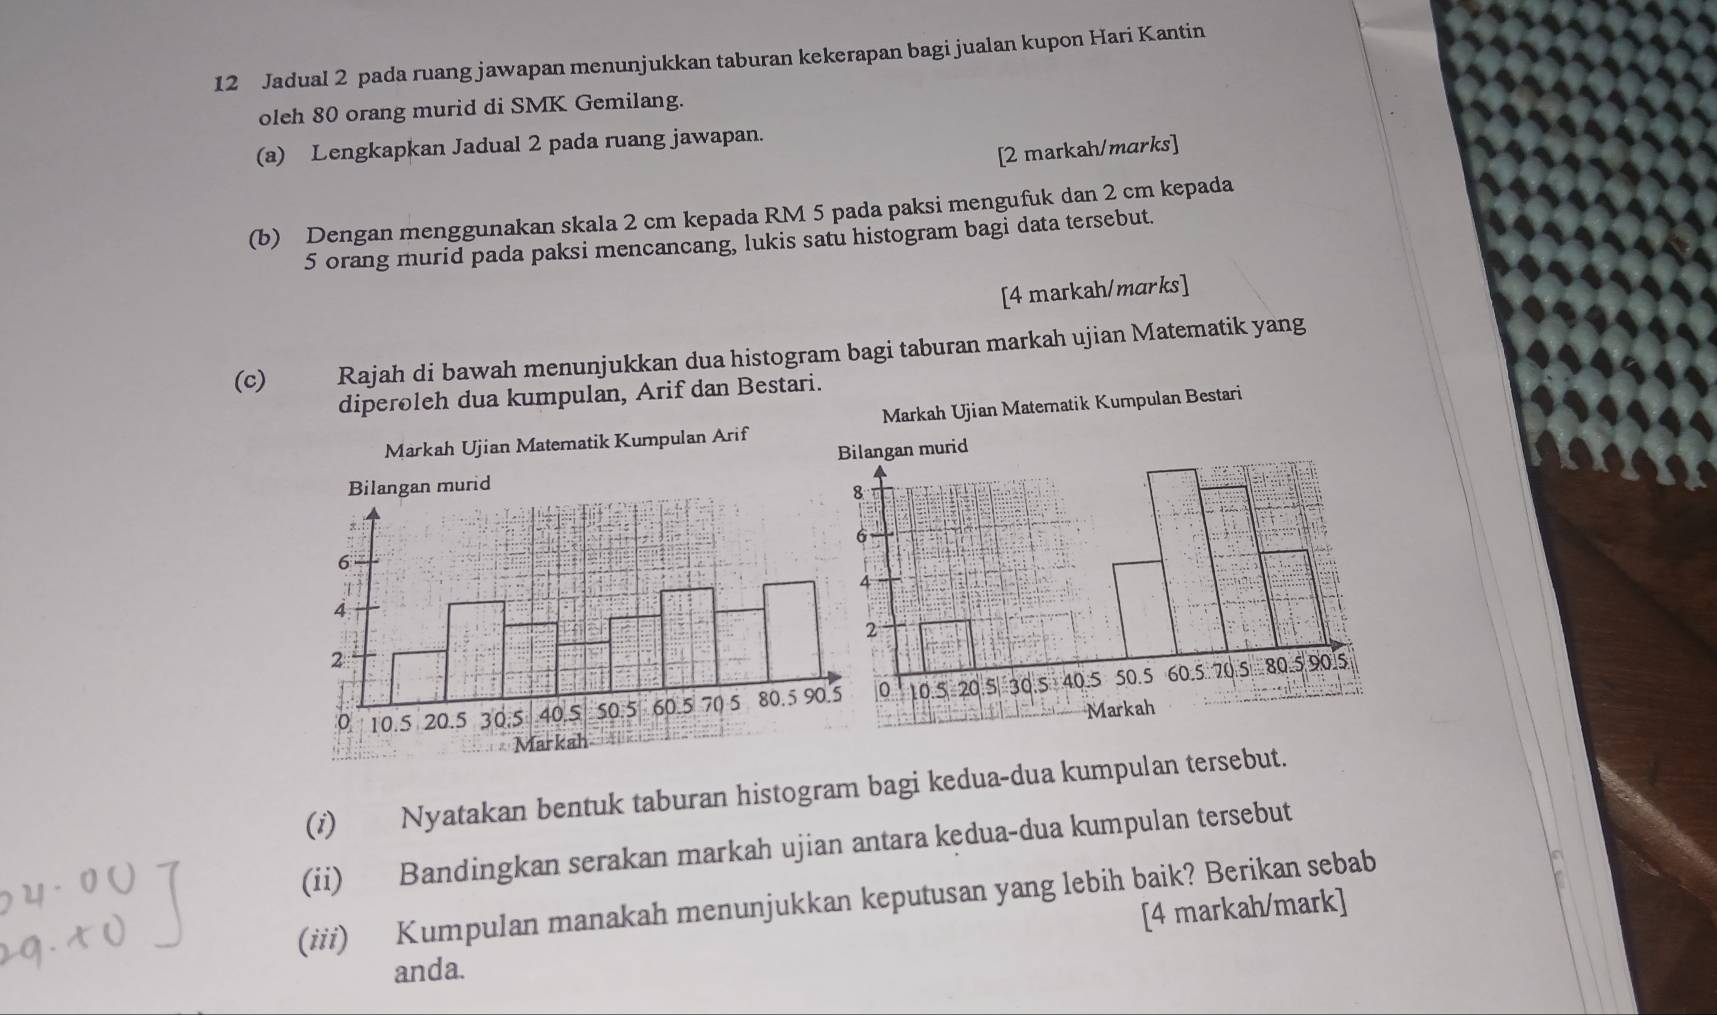 12 Jadual 2 pada ruang jawapan menunjukkan taburan kekerapan bagi jualan kupon Hari Kantin
oleh 80 orang murid di SMK Gemilang.
(a) Lengkapkan Jadual 2 pada ruang jawapan.
[2 markah/marks]
(b) Dengan menggunakan skala 2 cm kepada RM 5 pada paksi mengufuk dan 2 cm kepada
5 orang murid pada paksi mencancang, lukis satu histogram bagi data tersebut.
[4 markah/marks]
(c) Rajah di bawah menunjukkan dua histogram bagi taburan markah ujian Matematik yang
diperoleh dua kumpulan, Arif dan Bestari.
Markah Ujian Matematik Kumpulan Arif
Bilangan murid
6
4
2
0 10.5 20.5 30.5 40.5 50.5 60.5 70.5 80.5 90.5
Markah
Markah Ujian Matematik Kumpulan Bestari
Bilangan murid
8
6
4
2
0 10.5 20.5 30.5 40.5 50.5 60.5 70.5 80.5 90.5
Markah
(i) Nyatakan bentuk taburan histogram bagi kedua-dua kumpulan tersebut.
(ii) Bandingkan serakan markah ujian antara kedua-dua kumpulan tersebut
(iii) Kumpulan manakah menunjukkan keputusan yang lebih baik? Berikan sebab
anda.
[4 markah/mark]